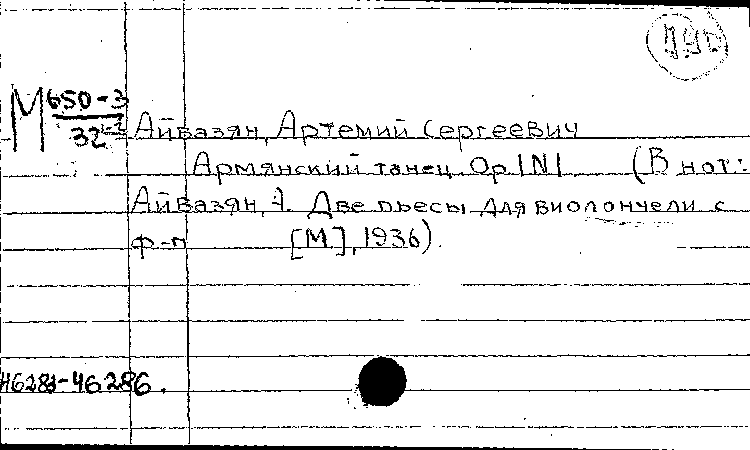 М 650-3
32
Айвазян, Артемий Сергеевич
Армянский танец. Op 1 N 1 (В нот:
Айвазян, А. Две пьесы для виолончели с
ф-п [М], 1936).
46283-46286.